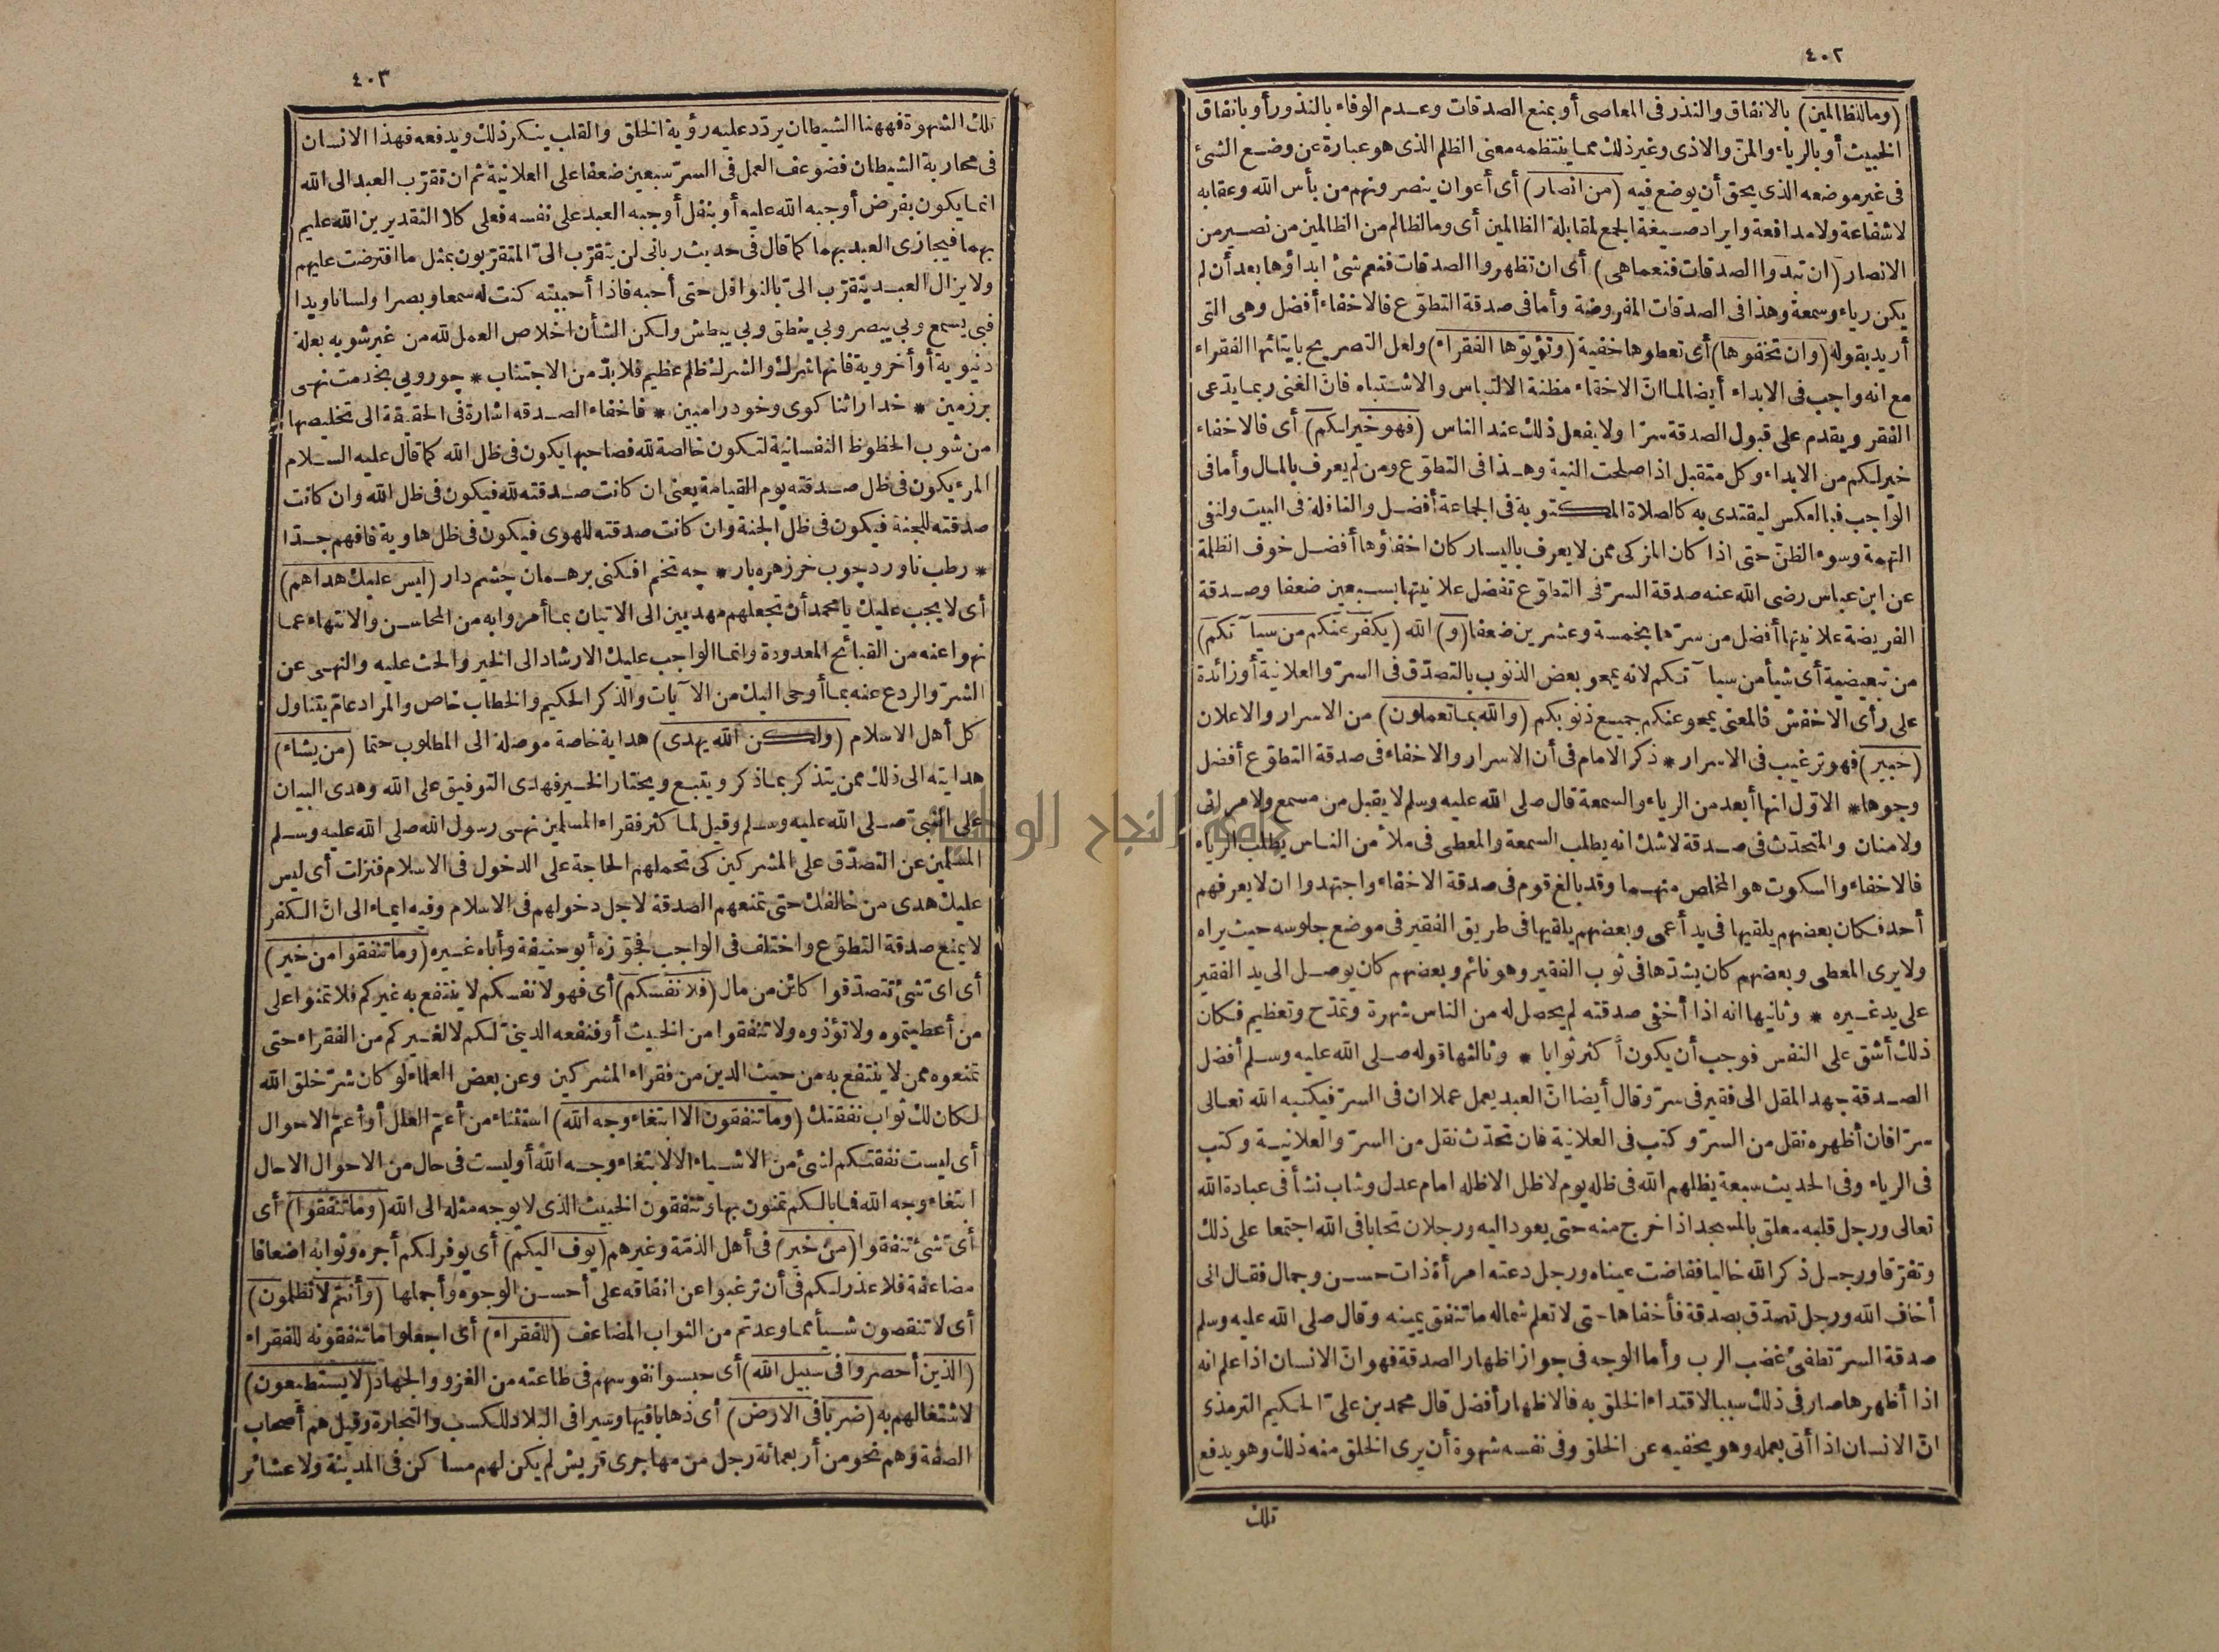 ٤٠٢
(وما للظالمين) بالانفاق والنذر فى المعاصى أو بمنع الصدقات وعدم الوفاء بالنذور أو بانفاق
الخبيث أو بالرياء والمنّ والاذى وغير ذلك مما ينتظمه معنى الظلم الذى هو عبارة عن وضع الشئ
فى غير موضعه الذى يحق أن يوضع فيه (من انصار) أى أعوان ينصرونهم من بأس الله وعقابه
لا شفاعة ولا مدافعة وايراد صيغة الجمع لمقابلة الظالمين أى وما لظالم من الظالمين من نصير من
الانصار (ان تبدوا الصدقات فنعما هى) أى ان تظهروا الصدقات فنعم شئ ابداؤها بعد أن لم
يكن رياء وسمعة وهذا فى الصدقات المفروضة وأما فى صدقة التطوّع فالاخفاء أفضل وهى التى
أريد بقوله (وان تخفوها) أى تعطوها خفية (وتؤتوها الفقراء) ولعل التصريح بايتائها الفقراء
مع انه واجب فى الابداء أيضا لما انّ الاخفاء مظنة الالتباس والاشتباه فانّ الغنى ربما يدّعى
الفقر ويقدم على قبول الصدقة سرّا ولا يفعل ذلك عند الناس (فهو خير لكم) أى فالاخفاء
خير لكم من الابداء وكل متقبل اذا صلحت النية وهذا فى التطوّع ومن لم يعرف بالمال وأما فى
الواجب فبالعكس ليقتدى به كالصلاة المكتوبة فى الجماعة أفضل والنافلة فى البيت ولنفى
التهمة وسوء الظنّ حتى اذا كان المزكى ممن لا يعرف باليسار كان اخفاؤها أفضل خوف الظلمة
عن ابن عباس رضى الله عنه صدقة السرّ فى التطوّع تفضل علانيتها بسبعين ضعفا وصدقة
الفريضة علانيتها أفضل من سرّها بخمسة وعشرين ضعفا (و) الله (يكفر عنكم من سيآتكم)
من تبعيضية أى شيأ من سيآتكم لانه يمحو بعض الذنوب بالتصدّق فى السرّ والعلانية أو زائدة
على رأى الاخفش فالمعنى يمحو عنكم جميع ذنوبكم (والله بما تعملون) من الاسرار والاعلان
(خبير) فهو ترغيب فى الاسرار * ذكر الامام فى أن الاسرار والاخفاء فى صدقة التطوّع أفضل
وجوها * الاوّل انها أبعد من الرياء والسمعة قال صلى الله عليه وسلم لا يقبل من مسمع ولا مرائى
ولا منان والمتحدّث فى صدقة لا شك انه يطلب السمعة والمعطى فى ملأ من الناس يطلب الرياء
فالاخفاء والسكوت هو المخلص منهما وقد بالغ قوم فى صدقة الاخفاء واجتهدوا ان لا يعرفهم
أحد فكان بعضهم يلقيها فى يد أعمى وبعضهم يلقيها فى طريق الفقير فى موضع جلوسه حيث يراه
ولا يرى المعطى وبعضهم كان يشدّها فى ثوب الفقير وهو نائم وبعضهم كان يوصل الى يد الفقير
على يد غيره * وثانيها انه اذا أخفى صدقته لم يحصل له من الناس شهرة وتمدّح وتعظيم فكان
ذلك أشق على النفس فوجب أن يكون أكثر ثوابا * وثالثها قوله صلى الله عليه وسلم أفضل
الصدقة جهد المقل الى فقير فى سرّ وقال أيضا انّ العبد يعمل عملا ان فى السرّ فيكتبه الله تعالى
سرّا فان أظهره نقل من السرّ وكتب فى العلانية فان تحدّث نقل من السرّ والعلانية وكتب
فى الرياء وفى الحديث سبعة يظلهم الله فى ظله يوم لا ظل الا ظله امام عدل وشاب نشأ فى عبادة الله
تعالى ورجل قلبه معلق بالمسجد اذا خرج منه حتى يعود اليه ورجلان تحابا فى الله اجتمعا على ذلك
وتفرّقا ورجل ذكر الله خاليا ففاضت عيناه ورجل دعته امرأة ذات حسن وجمال فقال انى
أخاف الله ورجل تصدّق بصدقة فأخفاها حتى لا تعلم شماله ما تنفق يمينه وقال صلى الله عليه وسلم
صدقة السرّ تطفئ غضب الرب وأما الوجه فى جواز اظهار الصدقة فهو انّ الانسان اذا علم انه
اذا أظهرها صار فى ذلك سببا لاقتداء الخلق به فالاظهار أفضل قال محمد بن علىّ الحكيم الترمذى
انّ الانسان اذا أتى بعمله وهو يخفيه عن الخلق وفى نفسه شهوة أن يرى الخلق منه ذلك وهو يدفع
تلك
٤٠٣
تلك الشهوة فههنا الشيطان يردّد عليه رؤية الخلق والقلب ينكر ذلك ويدفعه فهذا الانسان
فى محاربة الشيطان فضوعف العمل فى السرّ سبعين ضعفا على العلانية ثم ان تقرّب العبد الى الله
انما يكون بفرض أوجبه الله عليه أو بنفل أوجبه العبد على نفسه فعلى كلا التقديرين الله عليم
بهما فيجازى العبد بهما كما قال فى حديث ربانى لن يتقرّب الىّ المتقرّبون بمثل ما افترضت عليهم
ولا يزال العبد يتقرّب الىّ بالنوافل حتى أحبه فاذا أحببته كنت له سمعا وبصرا ولسانا ويدا
فبى يسمع وبى يبصر وبى ينطق وبى يبطش ولكن الشأن اخلاص العمل لله من غير شوبه بعلة
دنيوية أو أخروية فانها شرك والشرك ظلم عظيم فلا بدّ من الاجتناب * چو روبى بخدمت نهى
بر زمين * خدا را ثنا كوى وخود را مبين * فاخفاء الصدقه اشارة فى الحقيقة الى تخليصها
من شوب الحظوظ النفسانية لتكون خالصة لله فصاحبها يكون فى ظل الله كما قال عليه السلام
المرء يكون فى ظل صدقته يوم القيامة يعنى ان كانت صدقته لله فيكون فى ظل الله وان كانت
صدقته للجنة فيكون فى ظل الجنة وان كانت صدقته للهوى فيكون فى ظل هاوية فافهم جدّا
* رطب ناورد چوب خرزهره بار * چه تخم افكنى بر همان چشم دار (ليس عليك هداهم)
أى لا يجب عليك يا محمد أن تجعلهم مهديين الى الاتيان بما أمروا به من المحاسن والانتهاء عما
نهوا عنه من القبائح المعدودة وانما الواجب عليك الارشاد الى الخير والحث عليه والنهى عن
الشرّ والردع عنه بما أوحى اليك من الآيات والذكر الحكيم والخطاب خاص والمراد عامّ يتناول
كل أهل الاسلام (ولكن الله يهدى) هداية خاصة موصلة الى المطلوب حتما (من يشاء)
هدايته الى ذلك ممن يتذكر بما ذكر ويتبع ويختار الخير فهدى التوفيق على الله وهدى البيان
على النبىّ صلى الله عليه وسلم وقيل لما كثر فقراء المسلمين نهى رسول الله صلى الله عليه وسلم
المسلمين عن التصدّق على المشركين كى تحملهم الحاجة على الدخول فى الاسلام فنزلت أى ليس
عليك هدى من خالفك حتى تمنعهم الصدقة لاجل دخولهم فى الاسلام وفيه ايماء الى انّ الكفر
لا يمنع صدقة التطوّع واختلف فى الواجب فجوّزه أبو حنيفة وأباه غيره (وما تنفقوا من خير)
أى اىّ شئ تتصدّقوا كائن من مال (فلا نفسكم) أى فهو لا نفسكم لا ينتفع به غيركم فلا تمنوا على
من أعطيتموه ولا تؤذوه ولا تنفقوا من الخبيث أو فنفعه الدينىّ لكم لا لغيركم من الفقراء حتى
تمنعوه ممن لا ينتفع به من حيث الدين من فقراء المشركين وعن بعض العلماء لو كان شرّ خلق الله
لكان لك ثواب نفقتك (وما تنفقون الا ابتغاء وجه الله) استثناء من أعمّ العلل أو أعمّ الاحوال
أى ليست نفقتكم لشئ من الاشياء الا لابتغاء وجه الله أو ليست فى حال من الاحوال الا حال
ابتغاء وجه الله فما بالكم تمنون بها وتنفقون الخبيث الذى لا يوجه مثله الى الله (وما تنفقوا) أى
أىّ شئ تنفقوا (من خير) فى أهل الذمّة وغيرهم (يوف اليكم) أى يوفر لكم أجره وثوابه اضعافا
مضاعفة فلا عذر لكم فى أن ترغبوا عن انفاقه على أحسن الوجوه وأجملها (وأنتم لا تظلمون)
أى لا تنقصون شيأ مما وعدتم من الثواب المضاعف (للفقراء) أى اجعلوا ما تنفقونه للفقراء
(الذين أحصروا فى سبيل الله) أى حبسوا نفوسهم فى طاعته من الغزو والجهاد (لا يستطيعون)
لاشتغالهم به (ضربا فى الارض) أى ذهابا فيها وسيرا فى البلاد للكسب والتجارة وقيل هم أصحاب
الصفة وهم نحو من أربعمائة رجل من مهاجرى قريش لم يكن لهم مساكن فى المدينة ولا عشائر
جامعة النجاح الوطنية